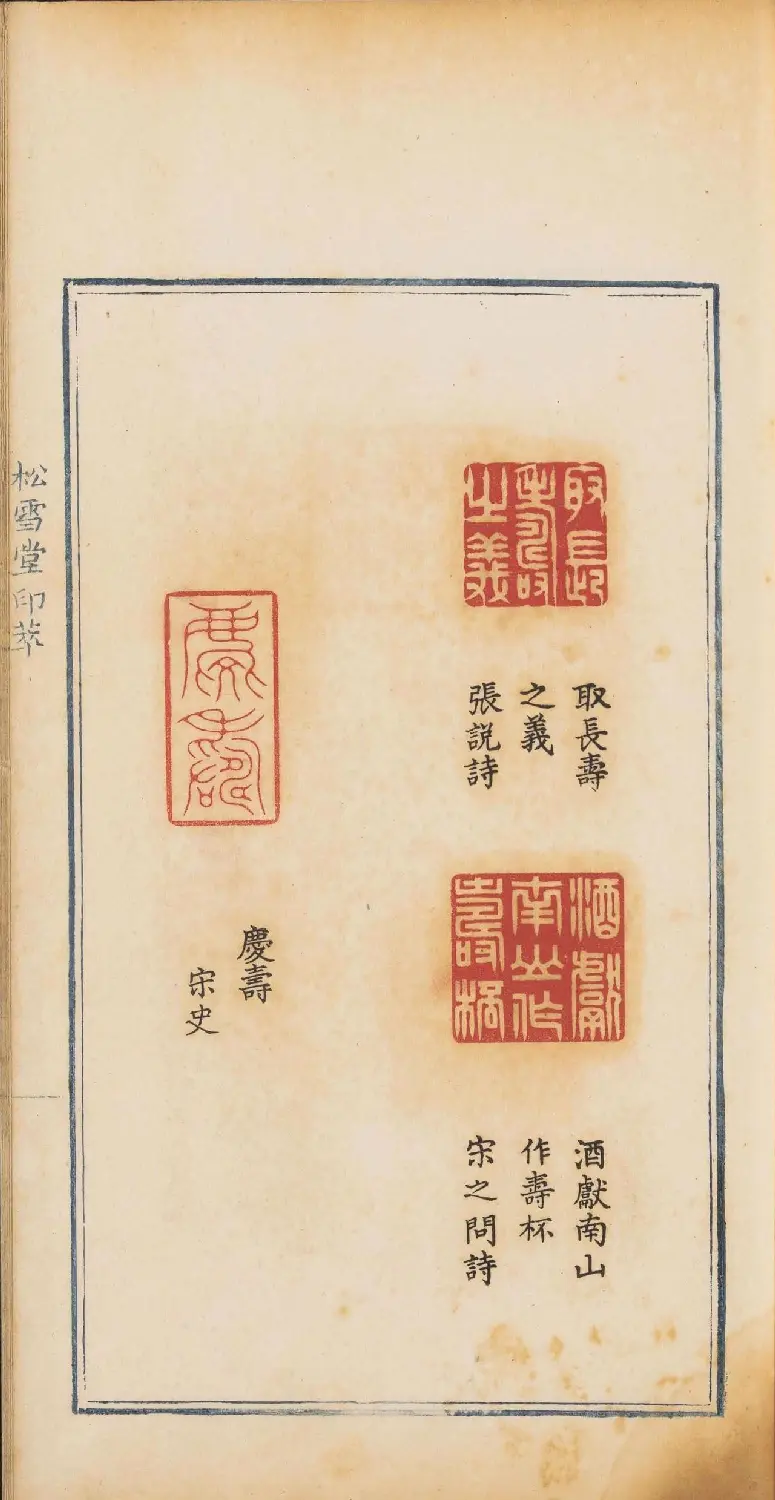 取長壽之義
取長壽
之義
張説詩
酒獻南山作壽杯
酒獻南山
作壽杯
宋之問詩
慶壽
慶壽
宋史
松雪堂印萃